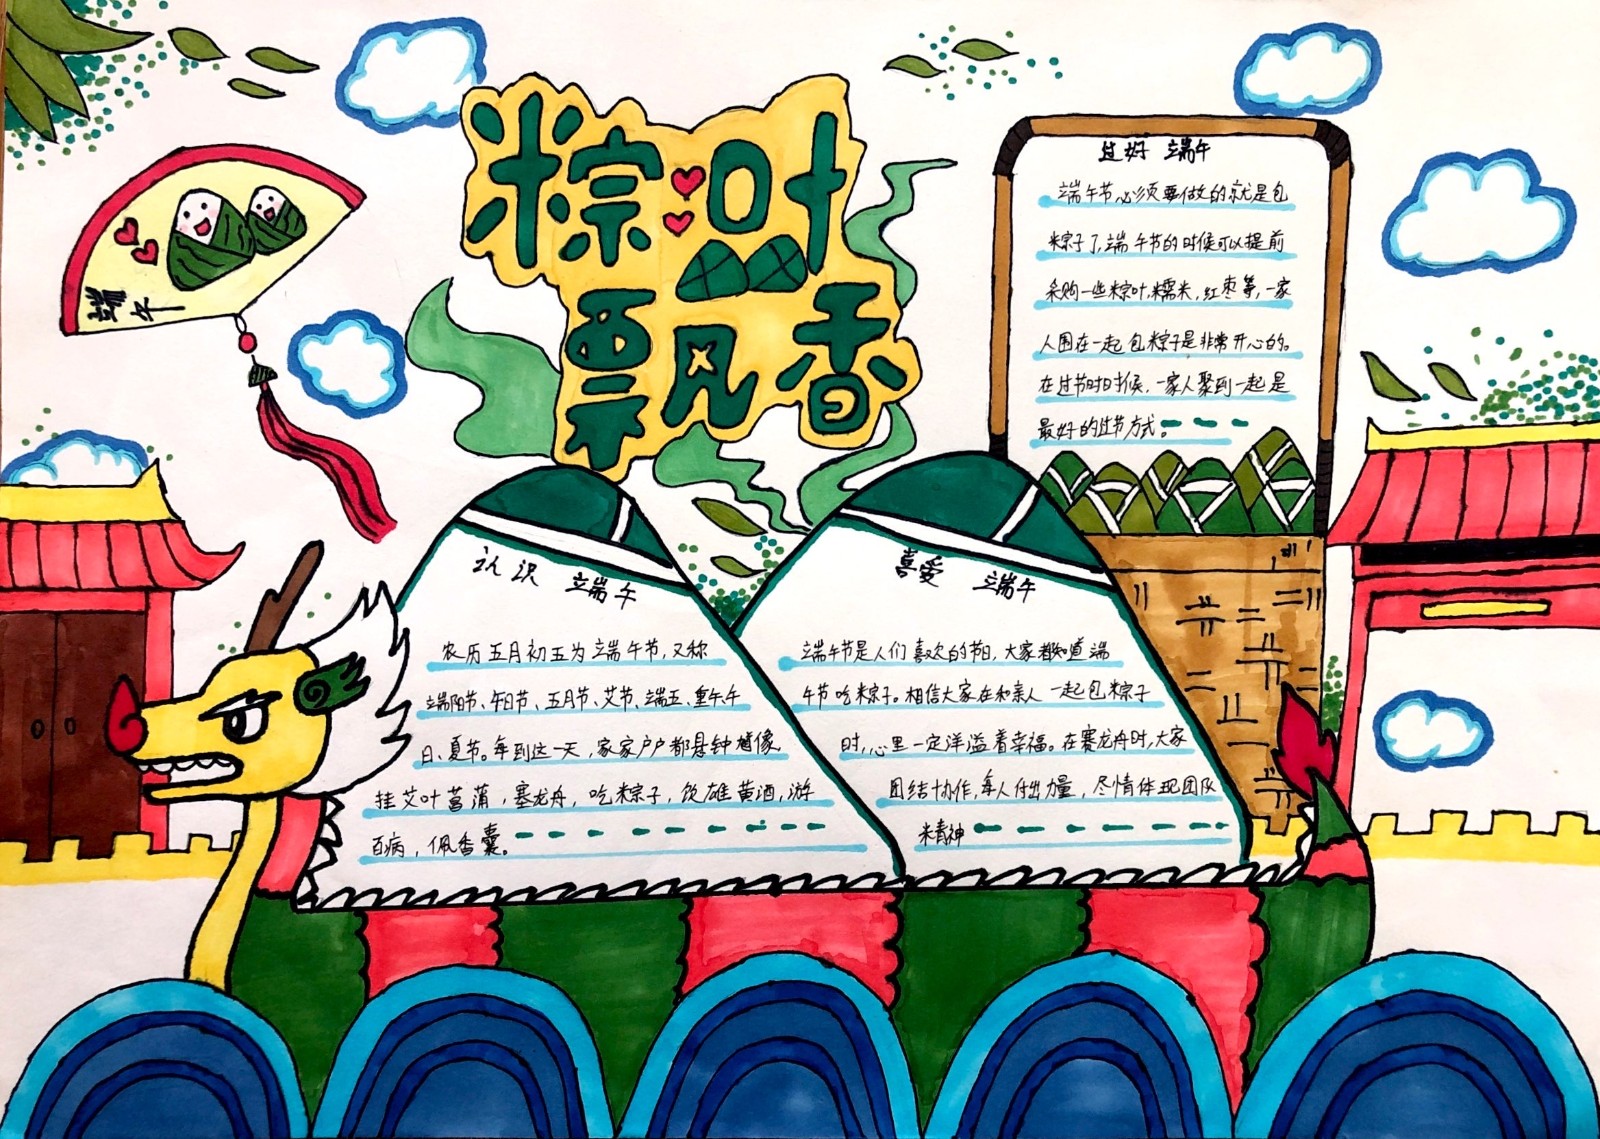 粽叶
飘香
端午
过好 端午
端午节必须要做的就是包
粽子了,端午节的时候可以提前
采购一些粽叶,糯米,红枣等,一家
人围在一起包粽子是非常开心的。
在过节时候,一家人聚到一起是
最好的过节方式。
认识 端午
农历五月初五为端午节,又称
端阳节、午日节、五月节、艾节、端五、重午、午
日、夏节。每到这一天,家家户户都悬钟馗像,
挂艾叶菖蒲,赛龙舟,吃粽子,饮雄黄酒,游
百病,佩香囊。
喜爱 端午
端午节是人们喜欢的节日,大家都知道端
午节吃粽子。相信大家在和亲人一起包粽子
时,心里一定洋溢着幸福。在赛龙舟时,大家
团结协作,每人付出力量,尽情体现团队
精神